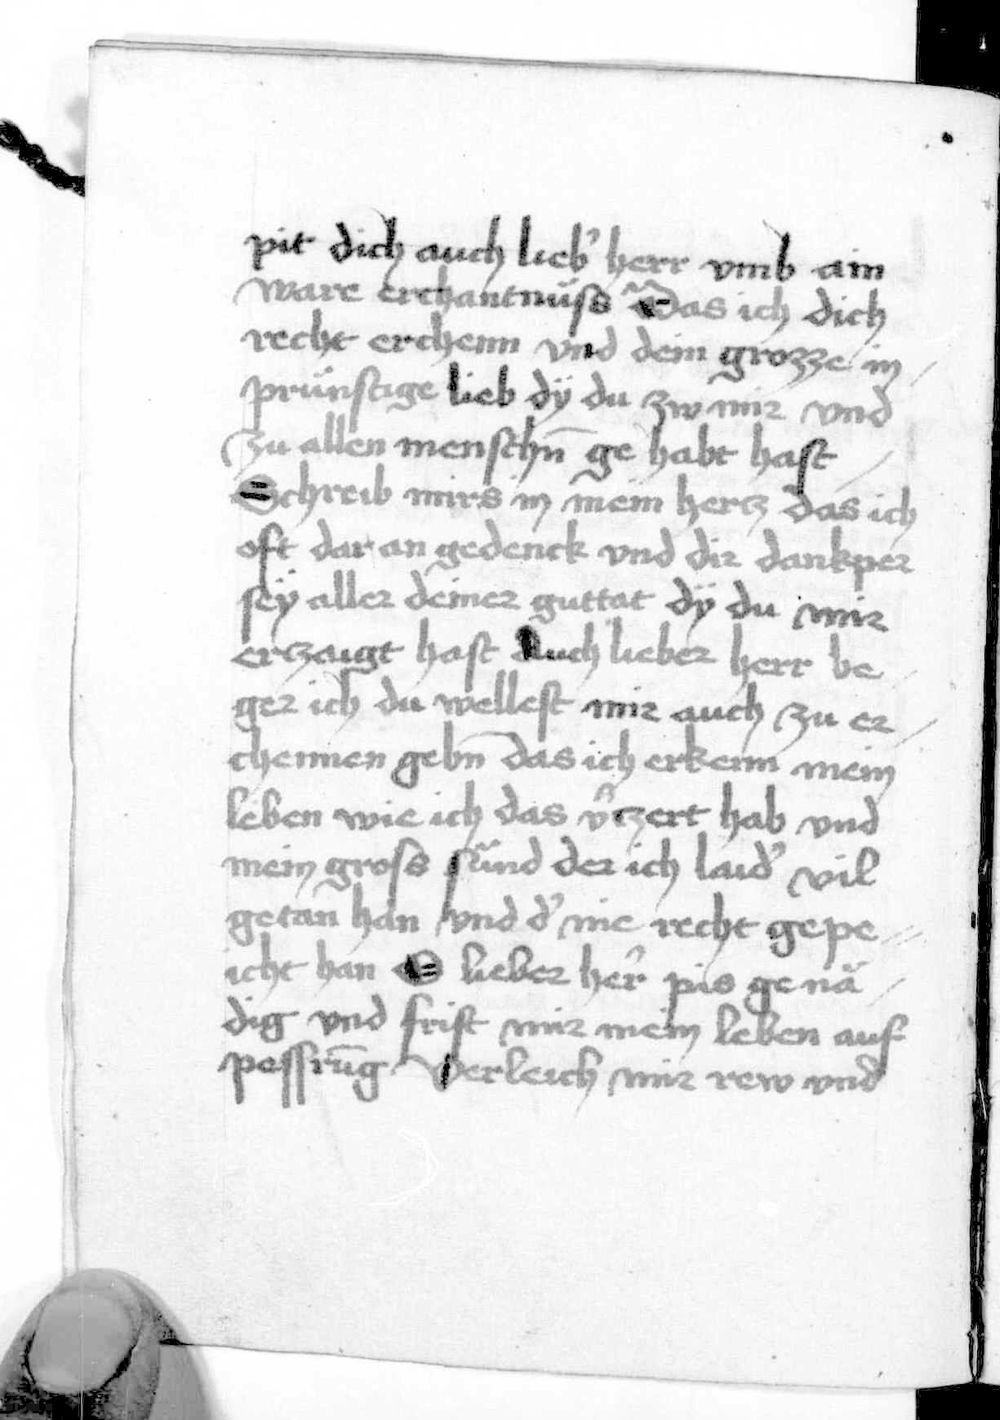 pit dich auch lieb' herr vmb ain
ware erchantnüss Das ich dich
recht erchenn vnd dein grozze in /
prünstige lieb dÿ du zw mir vnd
zu allen menschn̄ ge habt hast /
Schreib mirs in mein hertz das ich
oft dar an gedenck vnd dir dankper
seÿ aller deiner guttat dÿ du mir
ertzaigt hast Auch lieber herr be /
ger ich du wellest mir auch zu er /
chennen gebn̄ das ich erkenn mein
leben wie ich das v'tzert hab vnd
mein gross sünd der ich laid' vil
getan han vnd d' nie recht gepe //
icht han O lieber her' pis genä /
dig vnd frist mir mein leben auf
possrūg Verleich mir rew vnd